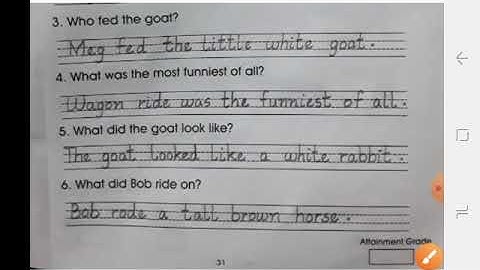 3. Who fed the goat?
Meg fed the little white goat.
4. What was the most funniest of all?
Wagon ride was the funniest of all.
5. What did the goat look like?
The goat looked like a white rabbit.
6. What did Bob ride on?
Bob rode a tall brown horse.
Attainment Grade
31